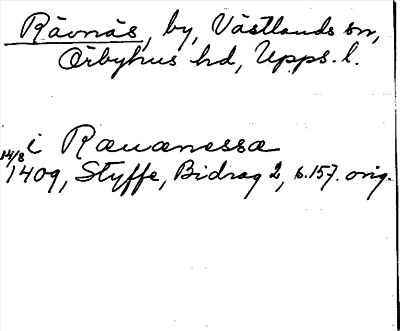 Rävnäs, by, Västlands sn,
Örbyhus hd, Upps. l.
i Ræuænessæ
14/8 1409, Styffe, Bidrag 2, s. 157. orig.